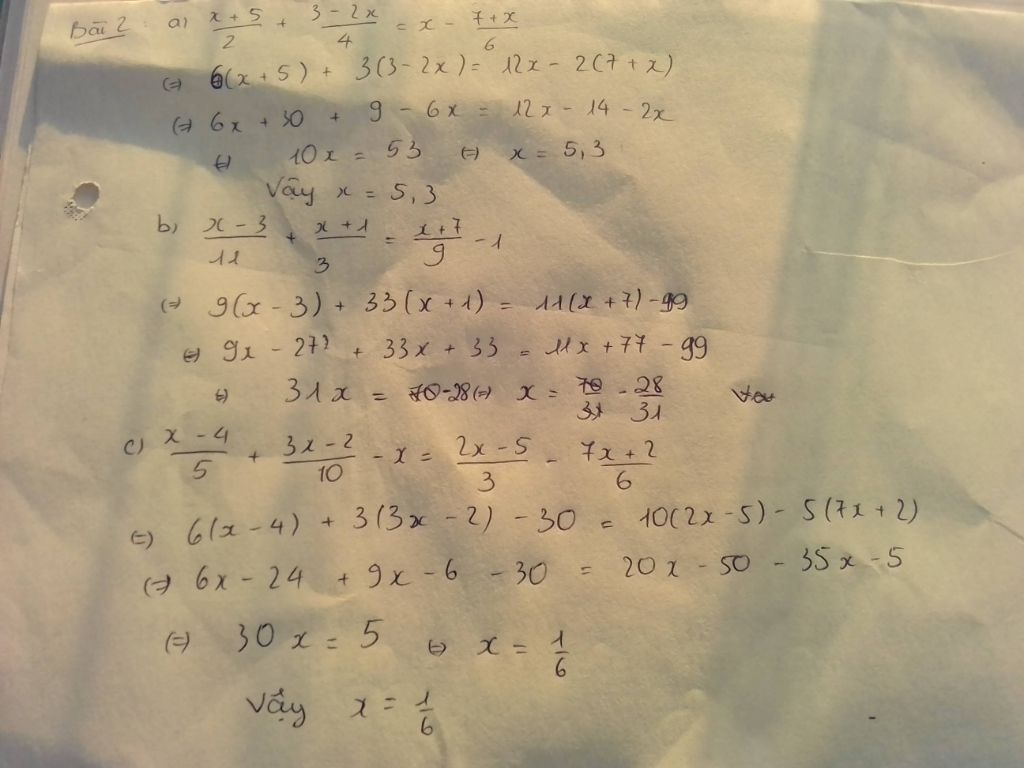 Bài 2 : a) \frac{x+5}{2} + \frac{3-2x}{4} = x - \frac{7+x}{6}
(=) 6(x+5) + 3(3-2x) = 12x - 2(7+x)
(=) 6x + 30 + 9 - 6x = 12x - 14 - 2x
(=) 10x = 53 (=) x = 5,3
Vậy x = 5,3
b) \frac{x-3}{11} + \frac{x+1}{3} = \frac{x+7}{9} - 1
(=) 9(x-3) + 33(x+1) = 11(x+7) - 99
(=) 9x - 27 + 33x + 33 = 11x + 77 - 99
(=) 31x = -28 (=) x = \frac{-28}{31}
c) \frac{x-4}{5} + \frac{3x-2}{10} - x = \frac{2x-5}{3} - \frac{7x+2}{6}
(=) 6(x-4) + 3(3x-2) - 30 = 10(2x-5) - 5(7x+2)
(=) 6x - 24 + 9x - 6 - 30 = 20x - 50 - 35x - 5
(=) 30x = 5 (=) x = \frac{1}{6}
Vậy x = \frac{1}{6}